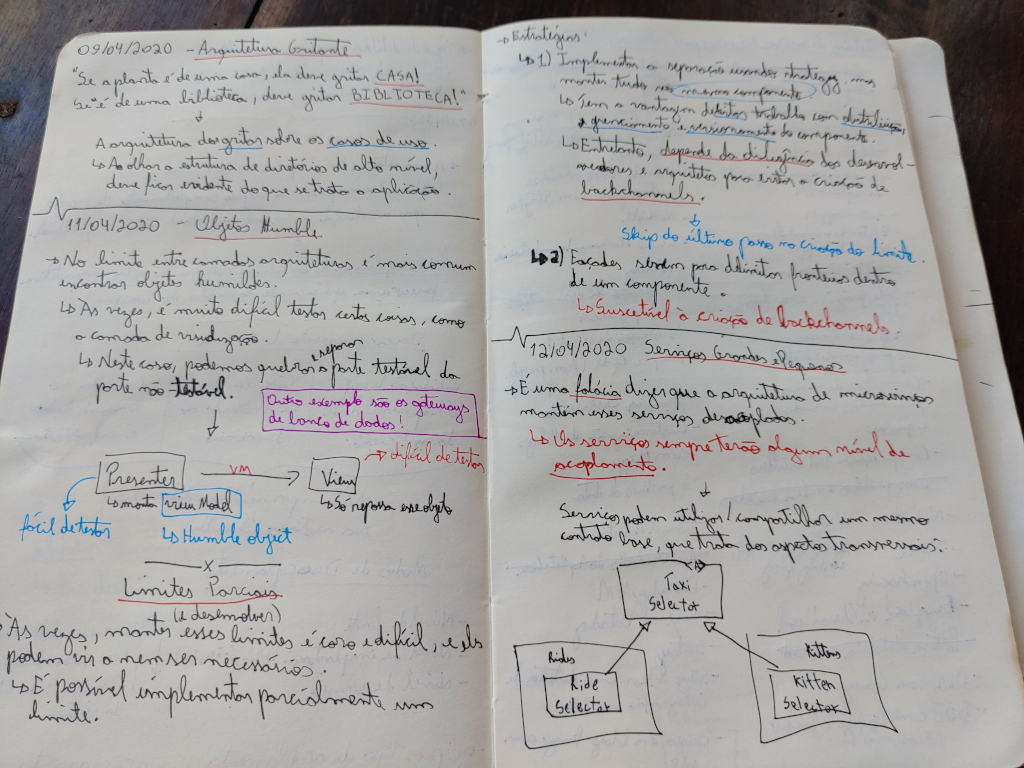 09/04/2020 - Arquitetura Gritante
"Se a planta é de uma casa, ela deve gritar CASA!
Se é de uma biblioteca, deve gritar BIBLIOTECA!"
A arquitetura deve gritar sobre os casos de uso.
↳ Ao olhar a estrutura de diretórios de alto nível,
deve ficar evidente do que se trata a aplicação.
11/04/2020 - Objetos Humble
→ No limite entre camadas arquiteturais é mais comum
encontrar objetos humildes.
↳ Às vezes, é muito difícil testar certas coisas, como
a camada de visualização.
↳ Neste caso, podemos quebrar e separar a parte testável da
parte não testável.
Outro exemplo são os gateways
de banco de dados!
Presenter
VM
View
→ difícil de testar
↳ monta view Model
↳ Só repassa esse objeto
fácil de testar
↳ Humble object
x
Limites Parciais
(e desenvolver)
→ Às vezes, manter esses limites é caro e difícil, e eles
podem vir a nem ser necessários.
↳ É possível implementar parcialmente um
limite.
→ Estratégias:
↳ 1) Implementar a separação usando strategy, mas
manter tudo no mesmo componente
↳ Tem a vantagem de
trabalho com distribuição,
gerenciamento e versionamento do componente.
↳ Entretanto, depende da diligência dos desenvol-
vedores e arquitetos para evitar a criação de
backchannels.
Skip do último passo na criação do limite.
↳ 2) Façades servem para delimitar fronteiras dentro
de um componente.
↳ Suscetível à criação de backchannels.
12/04/2020 Serviços Grandes e Pequenos
→ É uma falácia dizer que a arquitetura de microsserviços
mantém esses serviços desacoplados.
↳ Os serviços sempre terão algum nível de
acoplamento.
Serviços podem utilizar/compartilhar um mesmo
contrato base, que trata dos aspectos transversais:
<A>
Taxi
Selector
Rides
Ride
Selector
Kittens
Kitten
Selector